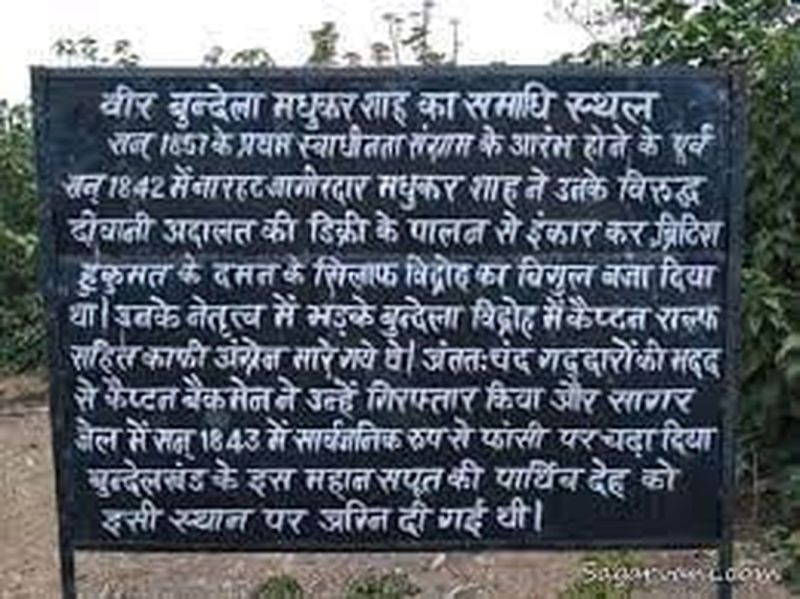 वीर बुन्देला मधुकर शाह का समाधि स्थल
सन् 1857 के प्रथम स्वाधीनता संग्राम के आरंभ होने के पूर्व
सन् 1842 में नारहट जागीरदार मधुकर शाह ने उनके विरुद्ध
दीवानी अदालत की डिक्री के पालन से इंकार कर ब्रिटिश
हुकुमत के दमन के खिलाफ विद्रोह का विगुल बजा दिया
था। उनके नेतृत्व में भड़के बुन्देला विद्रोह में कैप्टन राल्फ
सहित काफी अंग्रेज मारे गये थे। अंततः चंद गद्दारों की मदद
से कैप्टन बैकमेन ने उन्हें गिरफ्तार किया और सागर
जेल में सन् 1843 में सार्वजनिक रुप से फांसी पर चढ़ा दिया
बुन्देलखंड के इस महान सपूत की पार्थिव देह को
इसी स्थान पर अग्नि दी गई थी।
Sagarvani.com